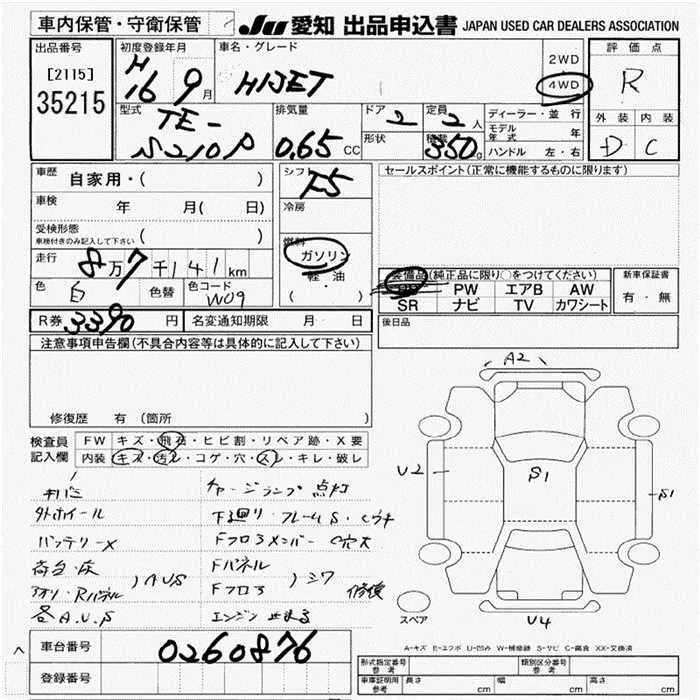 車内保管・守衛保管 JU 愛知 出品申込書 JAPAN USED CAR DEALERS ASSOCIATION
出品番号
[2115]
35215
初度登録年月
H
16 9月
車名・グレード
HIJET
2WD
4WD
評価点
R
外装 内装
D C
型式
TE-
S210P
排気量
0.65 CC
ドア
2
定員
2人
形状
積載
350
ディーラー・並行
モデル年式 年
ハンドル 左・右
車歴
自家用・( )
車検 年 月( 日)
受検形態
車検付きのみ記入して下さい ( )
走行 8万7千141km
色 白 色替 色コード W09
シフト
F5
冷房
燃料
ガソリン
軽・油
( ・ )
セールスポイント(正常に機能するものに限ります)
装備品(純正品に限り○をつけてください)
PW エアB AW
SR ナビ TV カワシート
新車保証書
有・無
後日品
R券 3390円 名変通知期限 月・日
注意事項申告欄(不具合内容等は具体的に記入して下さい)
修復歴 有(箇所 )
検査員記入欄
FW キズ・飛石・ヒビ割・リペア跡・X要
内装 キズ・汚レ・コゲ・穴・スレ・キレ・破レ
キバミ
外ホイール
バッテリーX
荷台・床
アオリ・Rパネル )AUS
各A.U.S
チャージランプ 点灯
下廻り・フレームS・
Fフロアメンバー C穴大
Fパネル
Fフロア )シワ 修復
エンジン
A2
U2
S1
S1
U4
スペア
A-キズ E-エクボ U-凹み W-補修跡 S-サビ C-腐食 XX-交換済
車台番号 0260876
登録番号
形式指定番号
参考
類別区分番号
参考
車庫証明用
参考
長さ cm 幅 cm 高さ cm